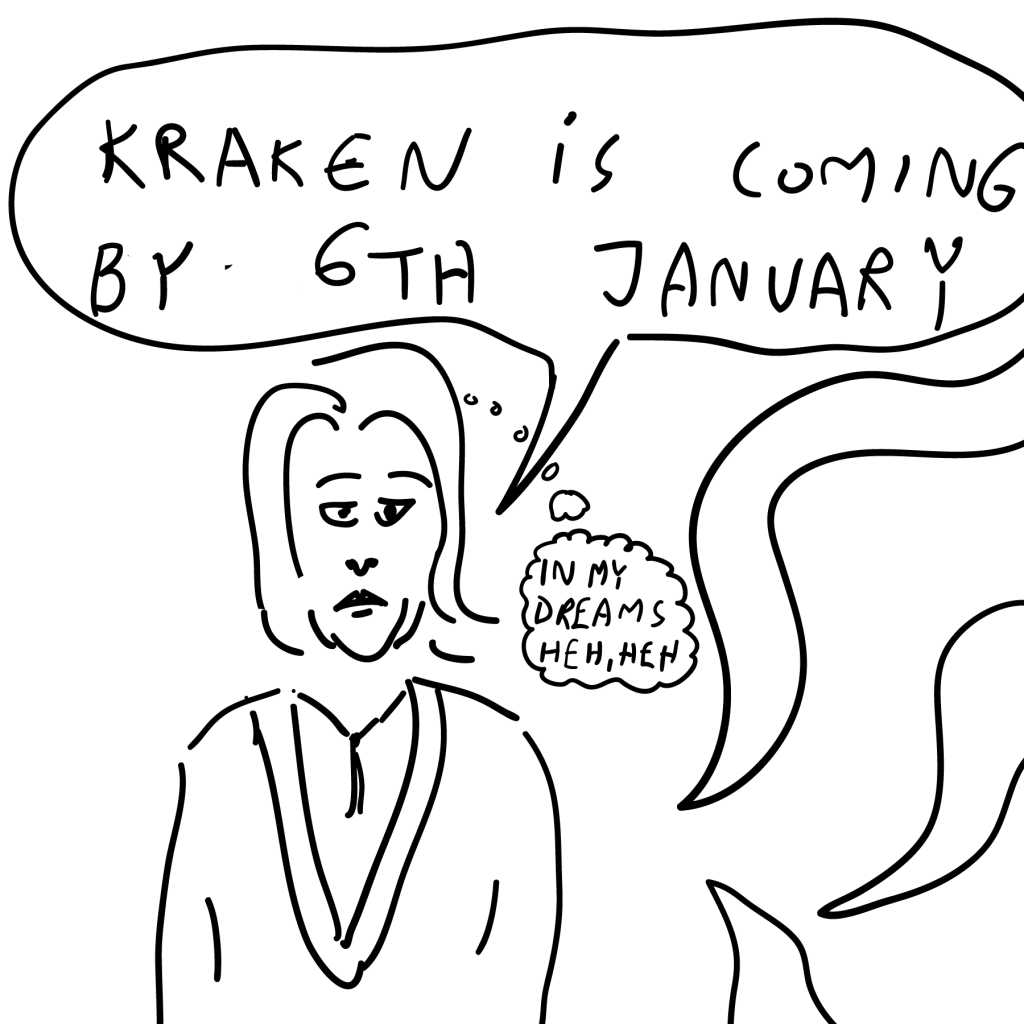 KRAKEN iS COMING
BY. 6TH JANUARY
IN MY
DREAMS
HEH, HEH